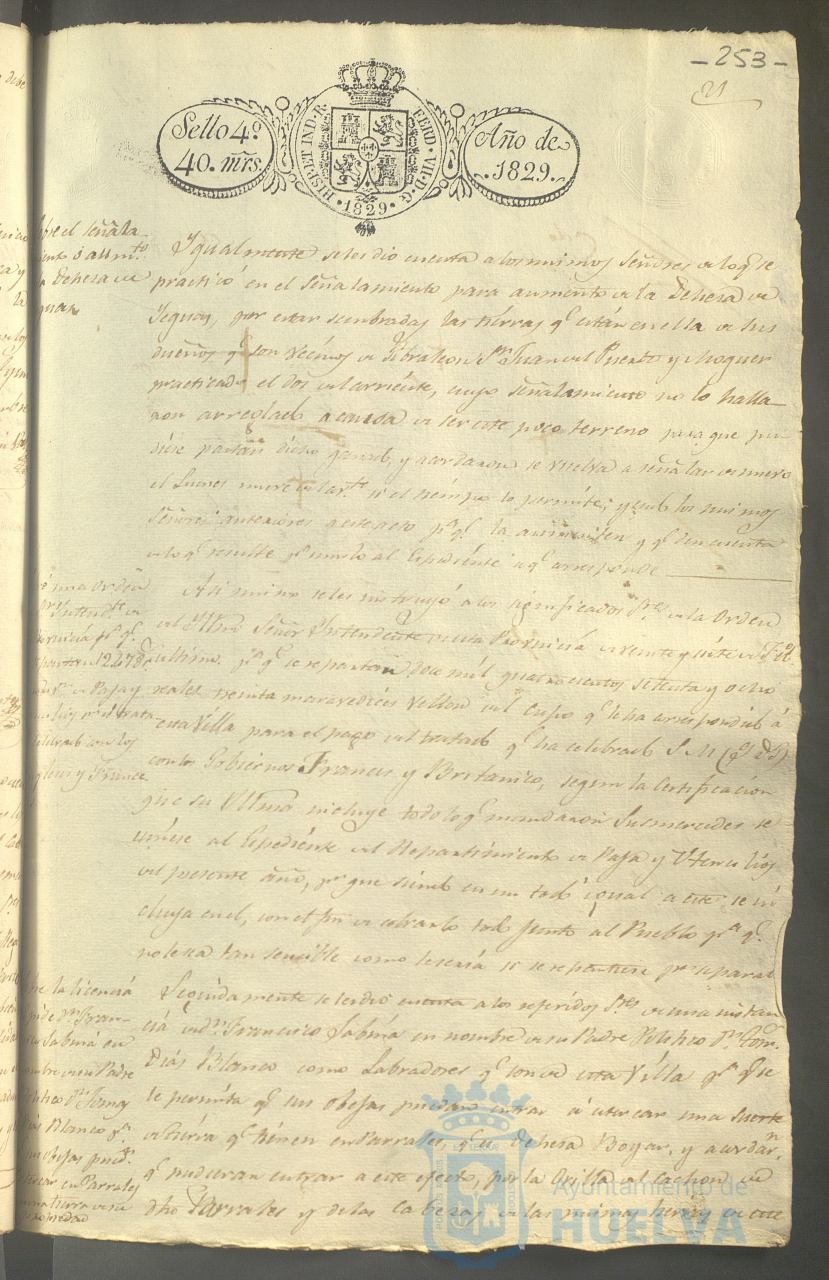 -253-
21
Sello 4º
40. mrs.
HISP. ET IND. R.
FERD. VII. D. G.
·1829·
Año de
.1829.
el señala-
miento
Dehesa de
Yeguas
Ygualmente seles dio cuenta a los mismos Señores de lo qe. se
practicó en el Señalamiento para aumento de la Dehesa de
Yeguas, por estar sembradas las tierras qe. están en ella de sus
dueños qe. son vecinos de Gibraleon Sn. Juan del Puerto y Moguer
practicado el dos del corriente, cuyo señalamiento no lo halla-
ron arreglado a causa de ser este poco terreno para que pu-
diese pastar dicho ganado, y acordaron se vuelva a señalar de nuevo
el Lunes nueve del si el tiempo lo permite; y con los mismos
Señores anteriores a este acto pa. qe. la y qe. den cuenta
de lo qe. resulte pa. unirlo al Espediente a qe. corresponde
una Orden
Intendte. de
Provincia pa. qe.
12478
de Paja y
trata-
celebrado con los
y Frances
Asi mismo se les instruyó a los significados Sres. de la Orden
del Yltmo. Señor Yntendente de esta Provincia de veinte y siete de Febo.
ultimo pa. qe. se repartan doce mil quatrocientos setenta y ocho
reales treinta maravedices vellon del cupo qe. le ha correspondido á
esta Villa para el pago del tratado qe. ha celebrado S. M. (q. D. g.)
con los Gobiernos Frances y Britanico, segun la Certificacion
que su Ultma. incluye todo lo qe. mandaron Sus mercedes se
uniese al Espediente del Repartimiento de Paja y Utensilios
del presente año, pa. que siendo en un todo igual a este, se in-
cluya en el, con el fin de cobrarlo todo junto al Pueblo pa. qe.
no le sea tan sencible como le seria si se repartiese por separado
la licencia
pide Dn. Fran-
Sabina en
nombre de su Padre
Politico Dn. Tomas
Dias Blanco pa.
sus obejas
en Parrales
tierra de su
propiedad
Seguidamente se les dio cuenta a los referidos Sres. de una instan-
cia de Dn. Francisco Sabina en nombre de su Padre Politico Dn. Tom.
Dias Blanco como Labradores qe. son de esta Villa pa. que se
le permita qe. sus obejas puedan entrar á estercar una suerte
de tierra qe. tienen en Parrales, qe. es Dehesa Boyar, y acordarn.
qe. pudieran entrar a este efecto, por la Orilla del cachon de
dho. Parrales y de las Cabezas de las mismas tierras de este
Ayuntamiento de
HUELVA